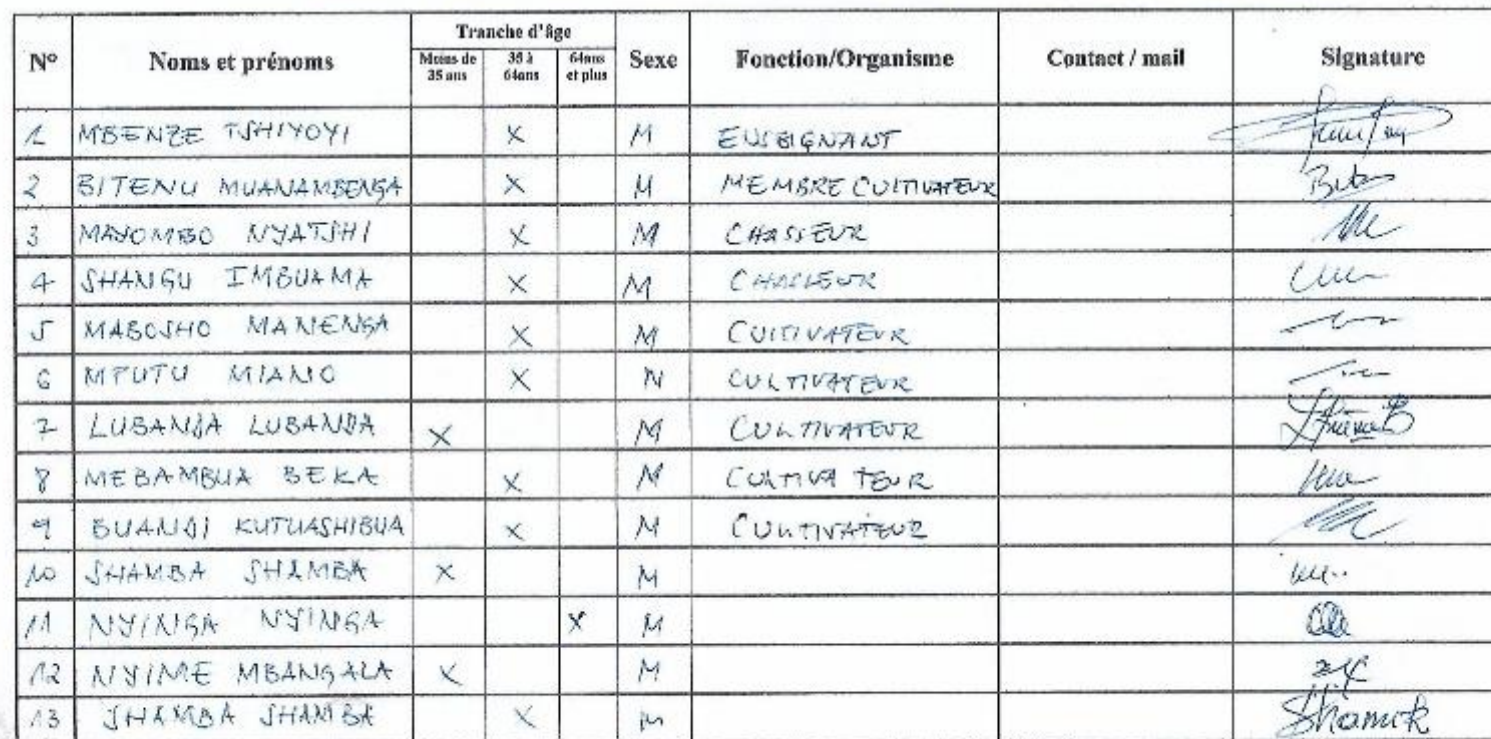 Tranche d'âge
N° Noms et prénoms Moins de 35 ans 35 à 64ans 64ans et plus Sexe Fonction/Organisme Contact / mail Signature
1 MBENZE TSHIYOYI X M ENSEIGNANT
2 BITENU MUANAMBENGA X M MEMBRE CULTIVATEUR
3 MAYOMBO NYATSHI X M CHASSEUR
4 SHANGU IMBUAMA X M CHASSEUR
5 MABOSHO MANENGA X M CULTIVATEUR
6 MPUTU MIANO X M CULTIVATEUR
7 LUBANDA LUBANDA X M CULTIVATEUR
8 MEBAMBUA BEKA X M CULTIVATEUR
9 BUANDI KUTUASHIBUA X M CULTIVATEUR
10 SHAMBA SHAMBA X M
11 NYINGA NYINGA X M
12 NYIME MBANGALA X M
13 SHAMBA SHAMBA X M